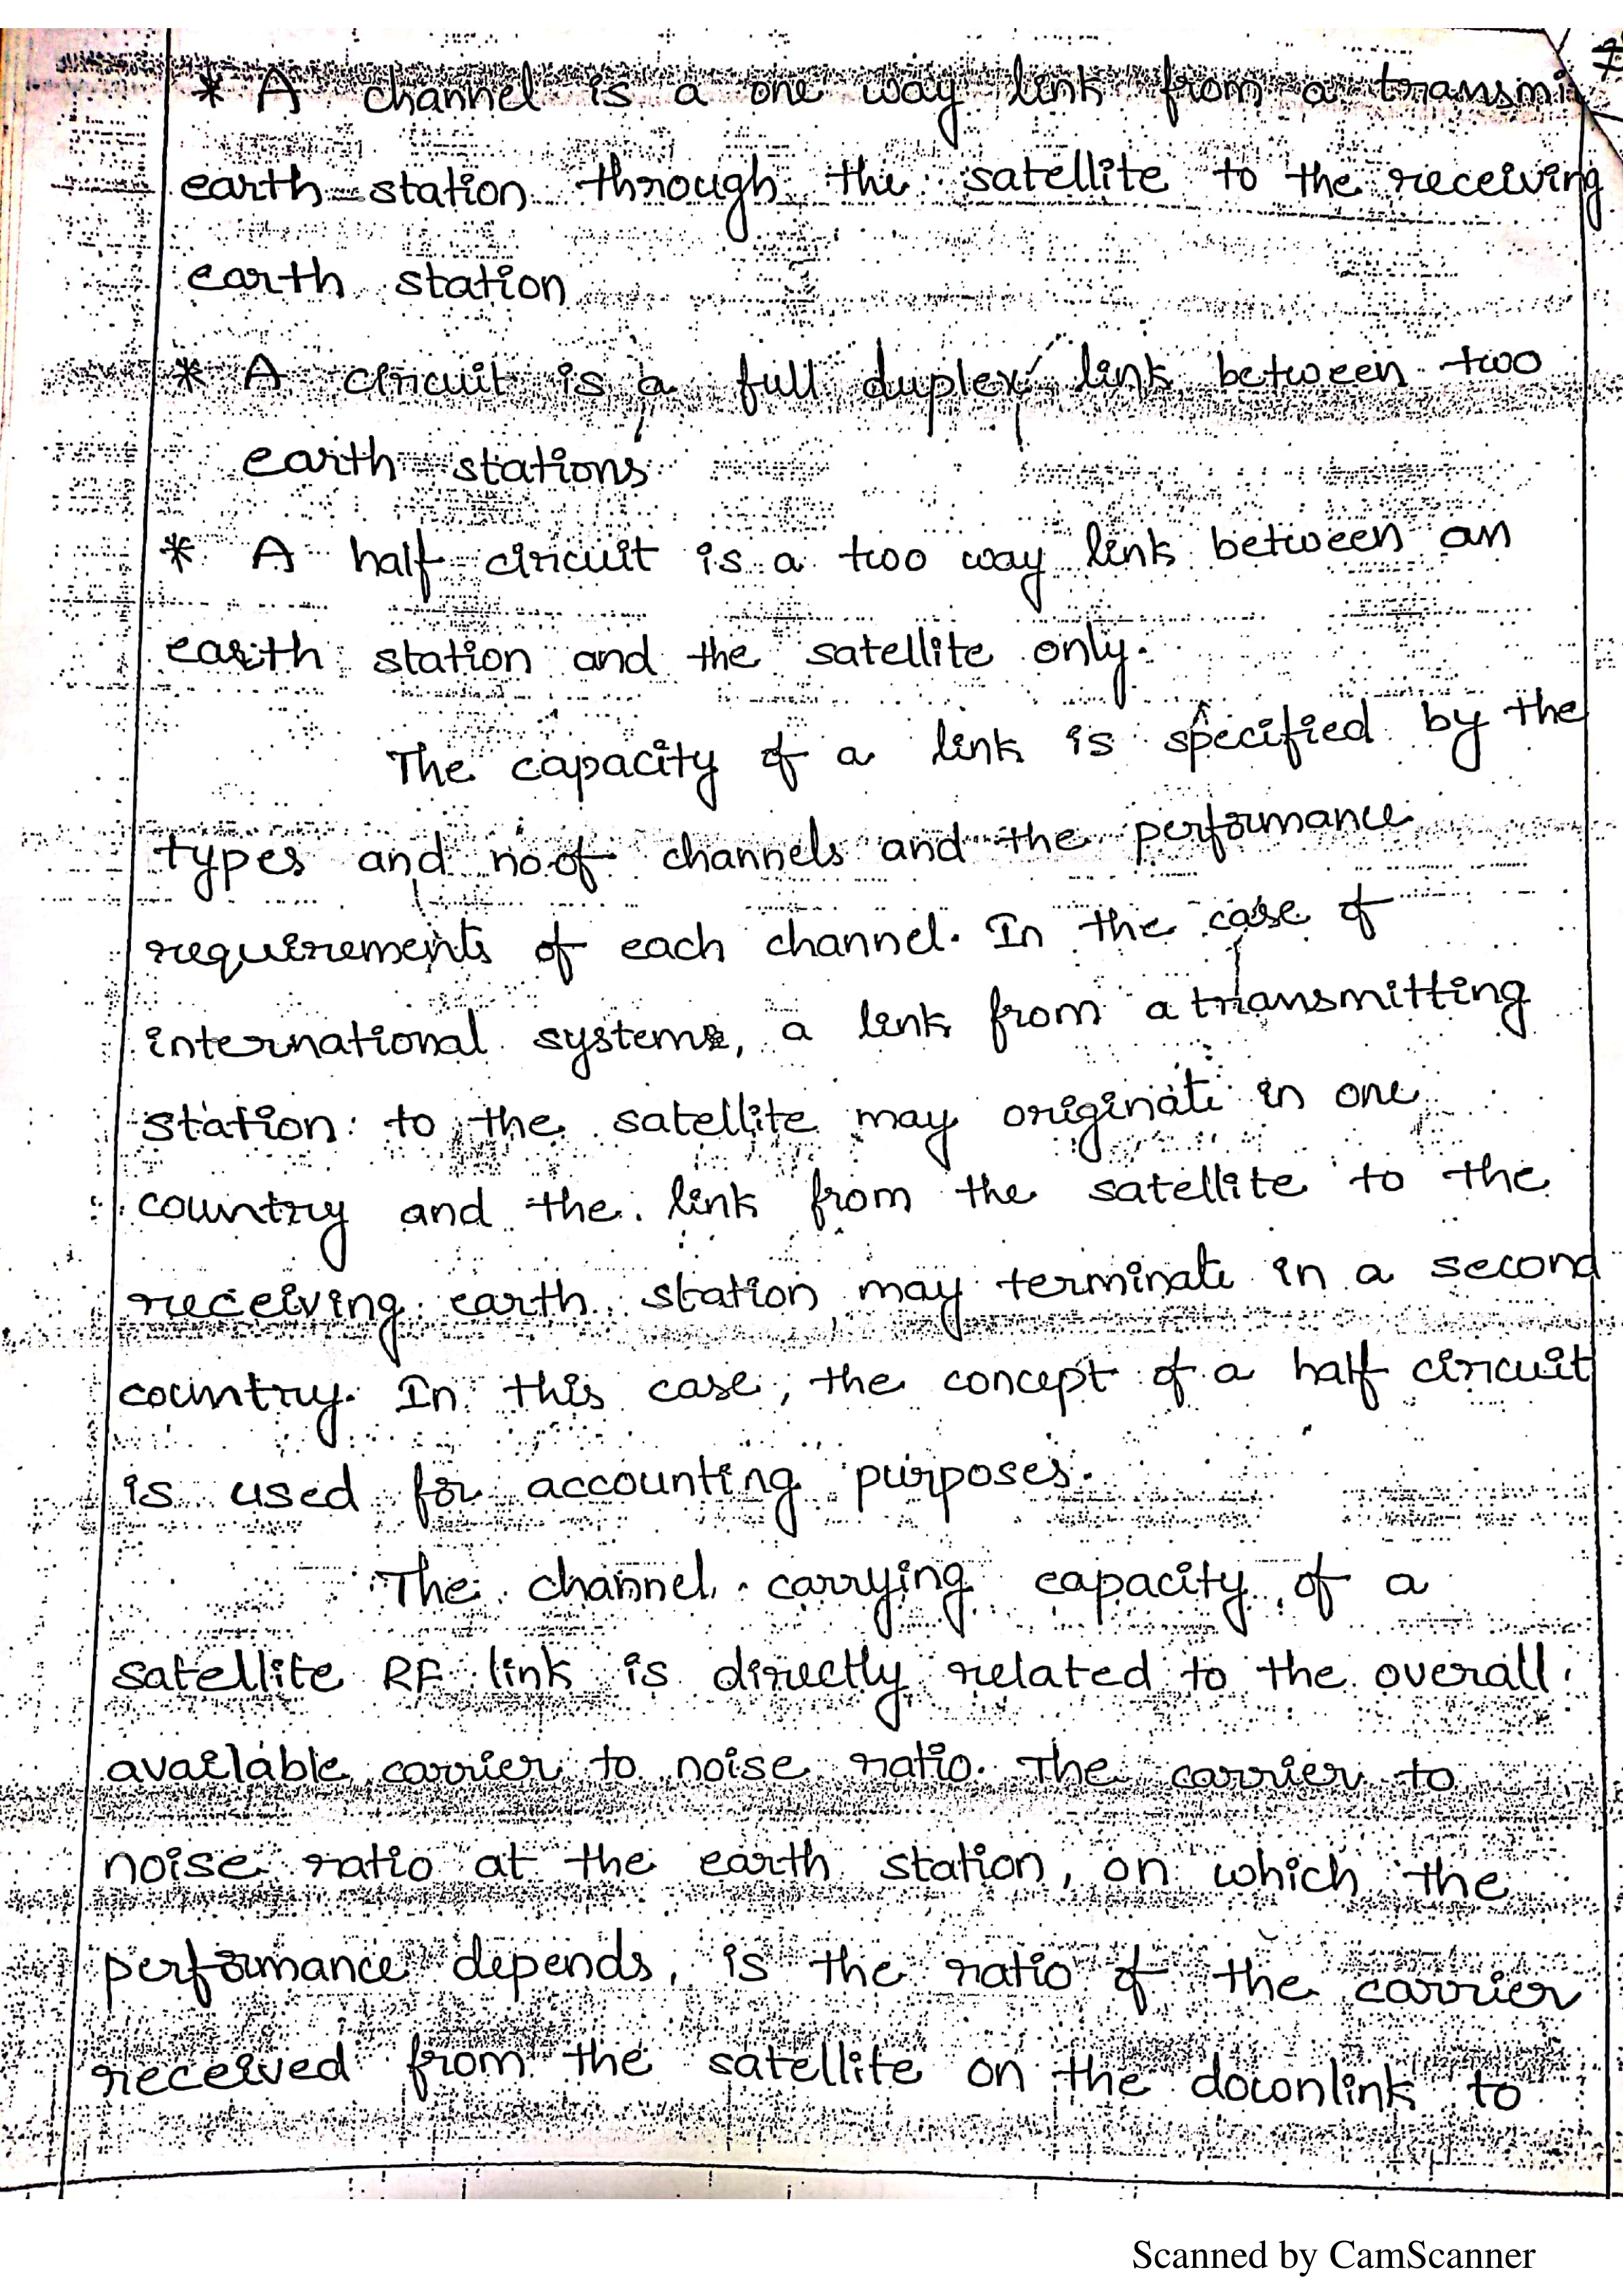 * A channel is a one way link from a transmi
earth station through the satellite to the receiving
earth station
* A circuit is a full duplex link between two
earth stations
* A half circuit is a two way link between an
earth station and the satellite only.
The capacity of a link is specified by the
types and no.of channels and the performance
requirements of each channel. In the case of
international systems, a link from a transmitting
station to the satellite may originate in one
country and the link from the satellite to the
receiving earth station may terminate in a second
country. In this case, the concept of a half circuit
is used for accounting purposes.
The channel carrying capacity of a
satellite RF link is directly related to the overall
available carrier to noise ratio. The carrier to
noise ratio at the earth station, on which the
performance depends, is the ratio of the carrier
received from the satellite on the downlink to
Scanned by CamScanner